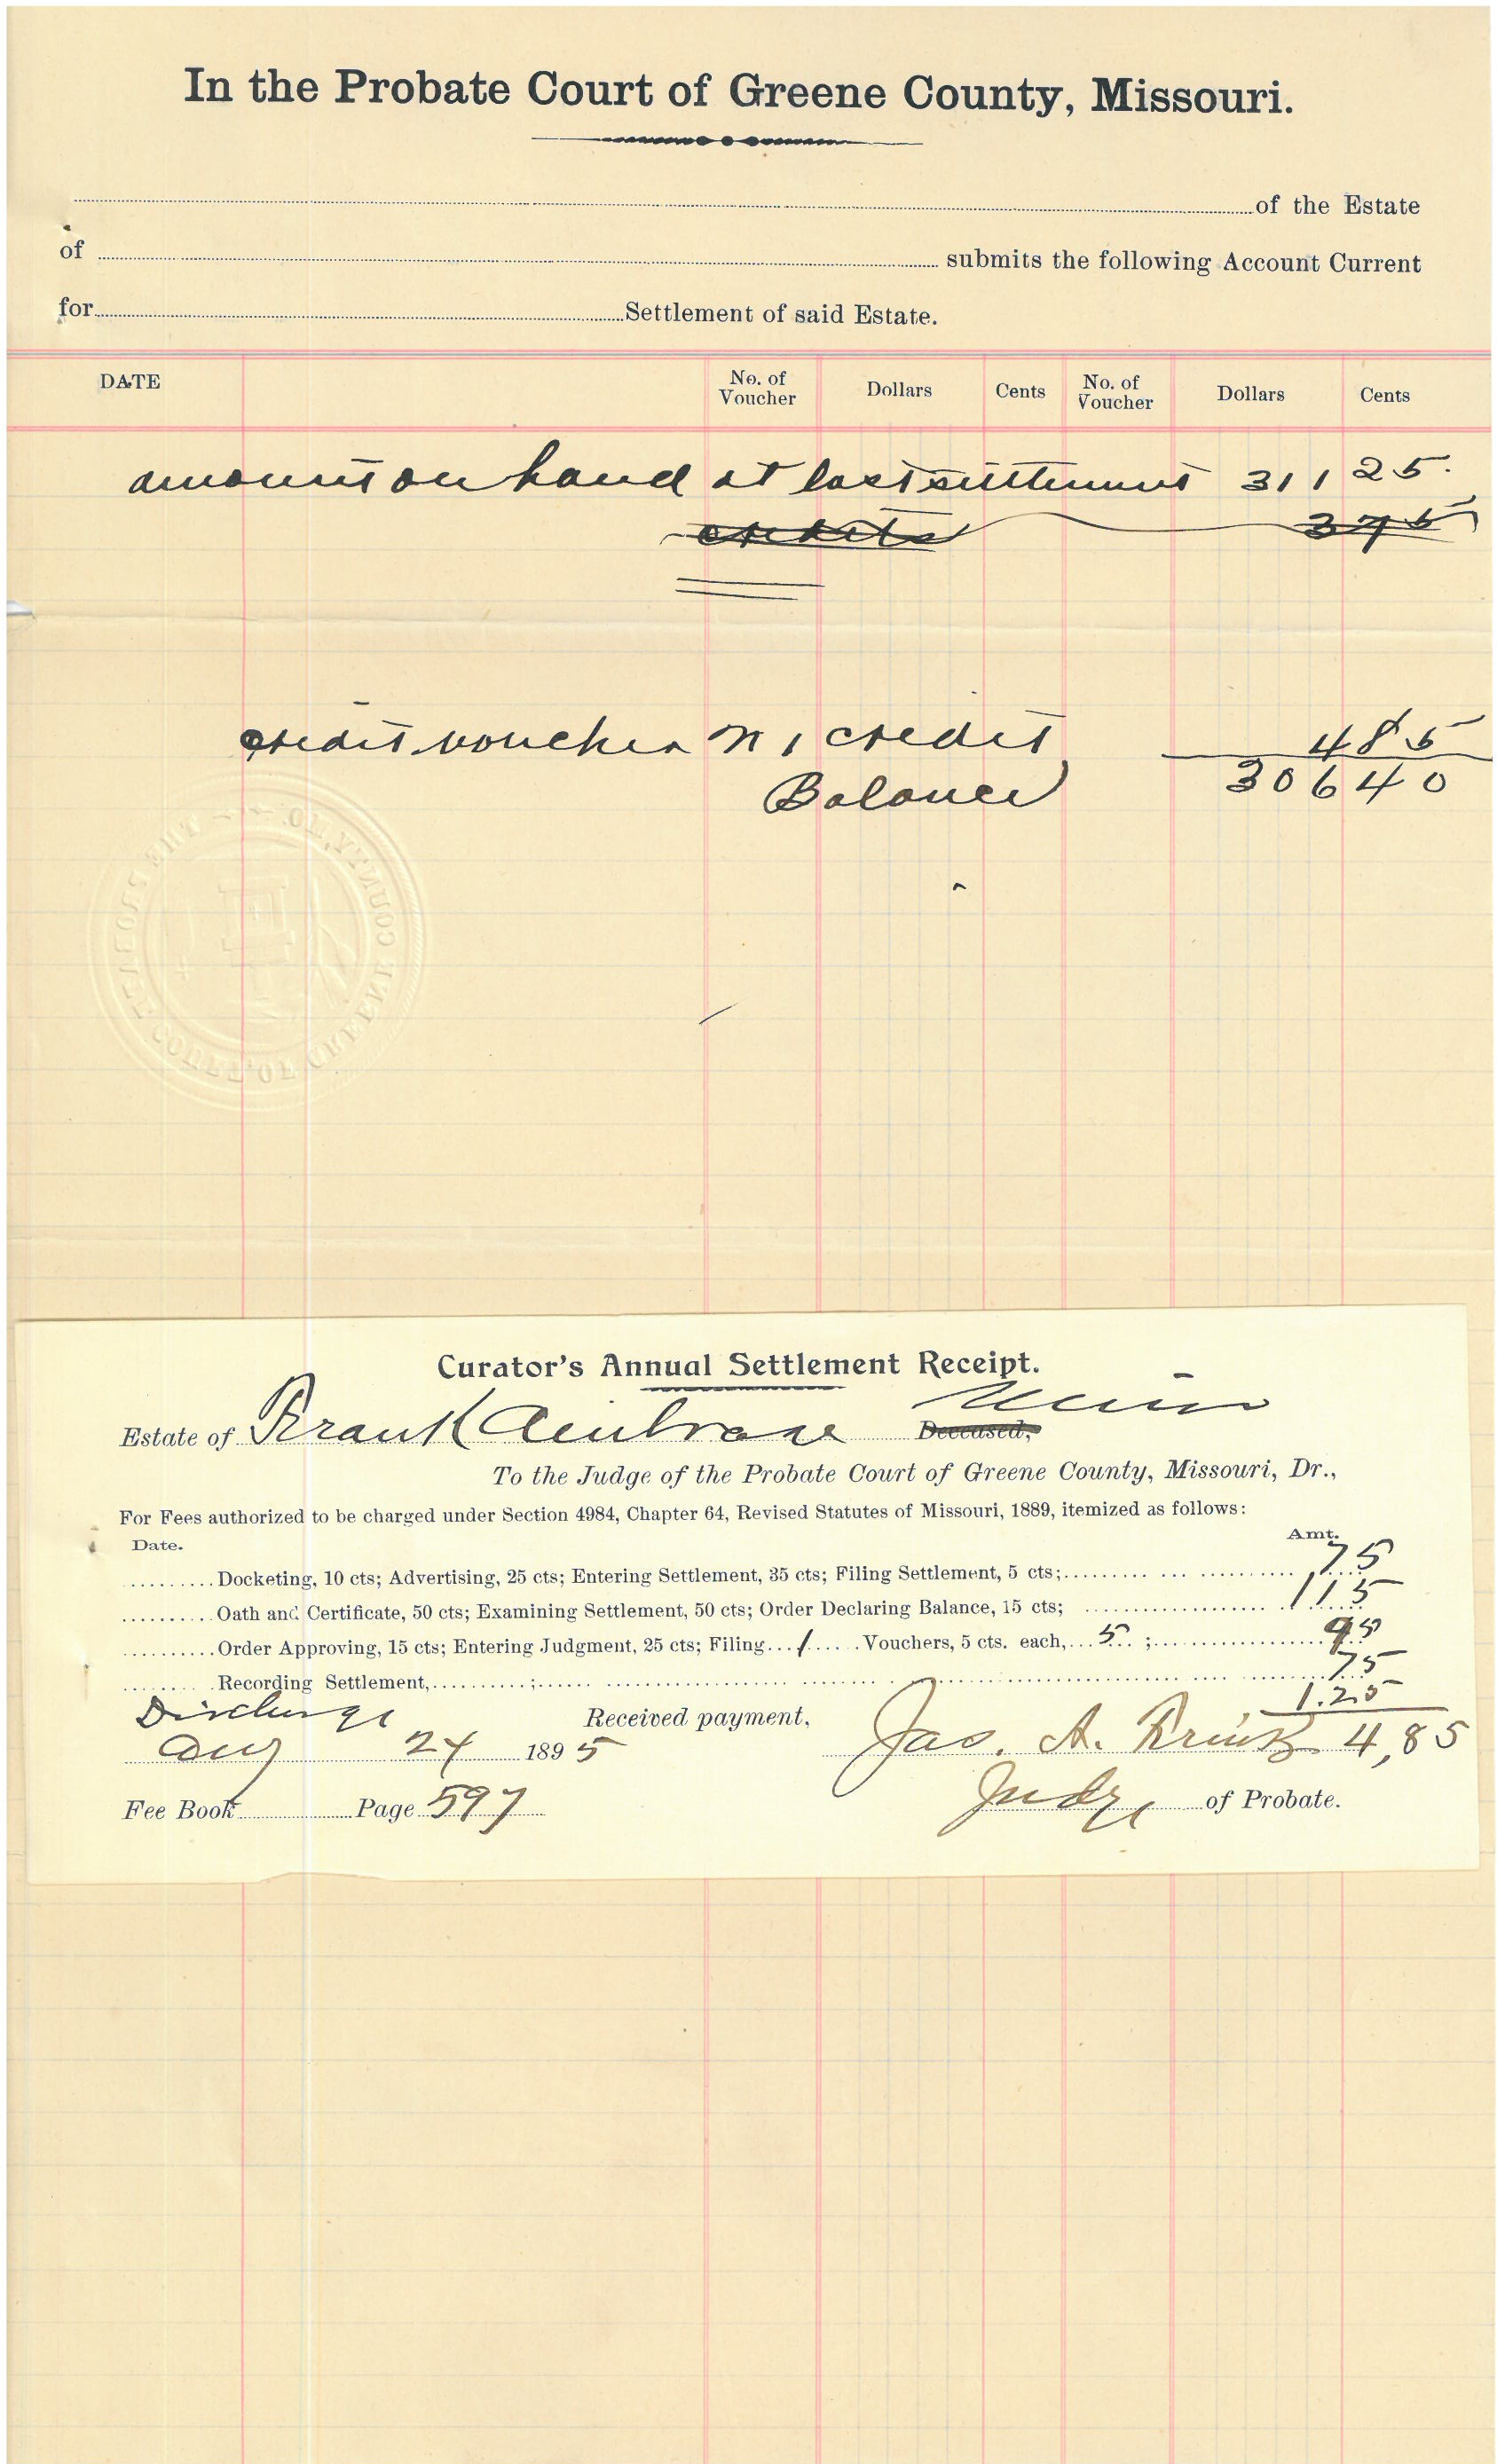 In the Probate Court of Greene County, Missouri.
of the Estate
of submits the following Account Current
for Settlement of said Estate.
DATE No. of Voucher Dollars Cents No. of Voucher Dollars Cents
amount on hand at last settlement 311 25
credits 375
credit voucher N 1 credit 4 85
Balance 306 40
THE PROBATE COURT OF GREENE COUNTY, MO.
Curator's Annual Settlement Receipt.
Estate of Frank Ambrose Deceased, Minor
To the Judge of the Probate Court of Greene County, Missouri, Dr.,
For Fees authorized to be charged under Section 4984, Chapter 64, Revised Statutes of Missouri, 1889, itemized as follows:
Date. Amt.
Docketing, 10 cts; Advertising, 25 cts; Entering Settlement, 35 cts; Filing Settlement, 5 cts; 75
Oath and Certificate, 50 cts; Examining Settlement, 50 cts; Order Declaring Balance, 15 cts; 115
Order Approving, 15 cts; Entering Judgment, 25 cts; Filing 1 Vouchers, 5 cts. each, 5 ; 95
Recording Settlement, ; 75
Discharge 1.25
Received payment, Jas. A. 4,85
Aug 24 1895
Fee Book Page 597 Judge of Probate.